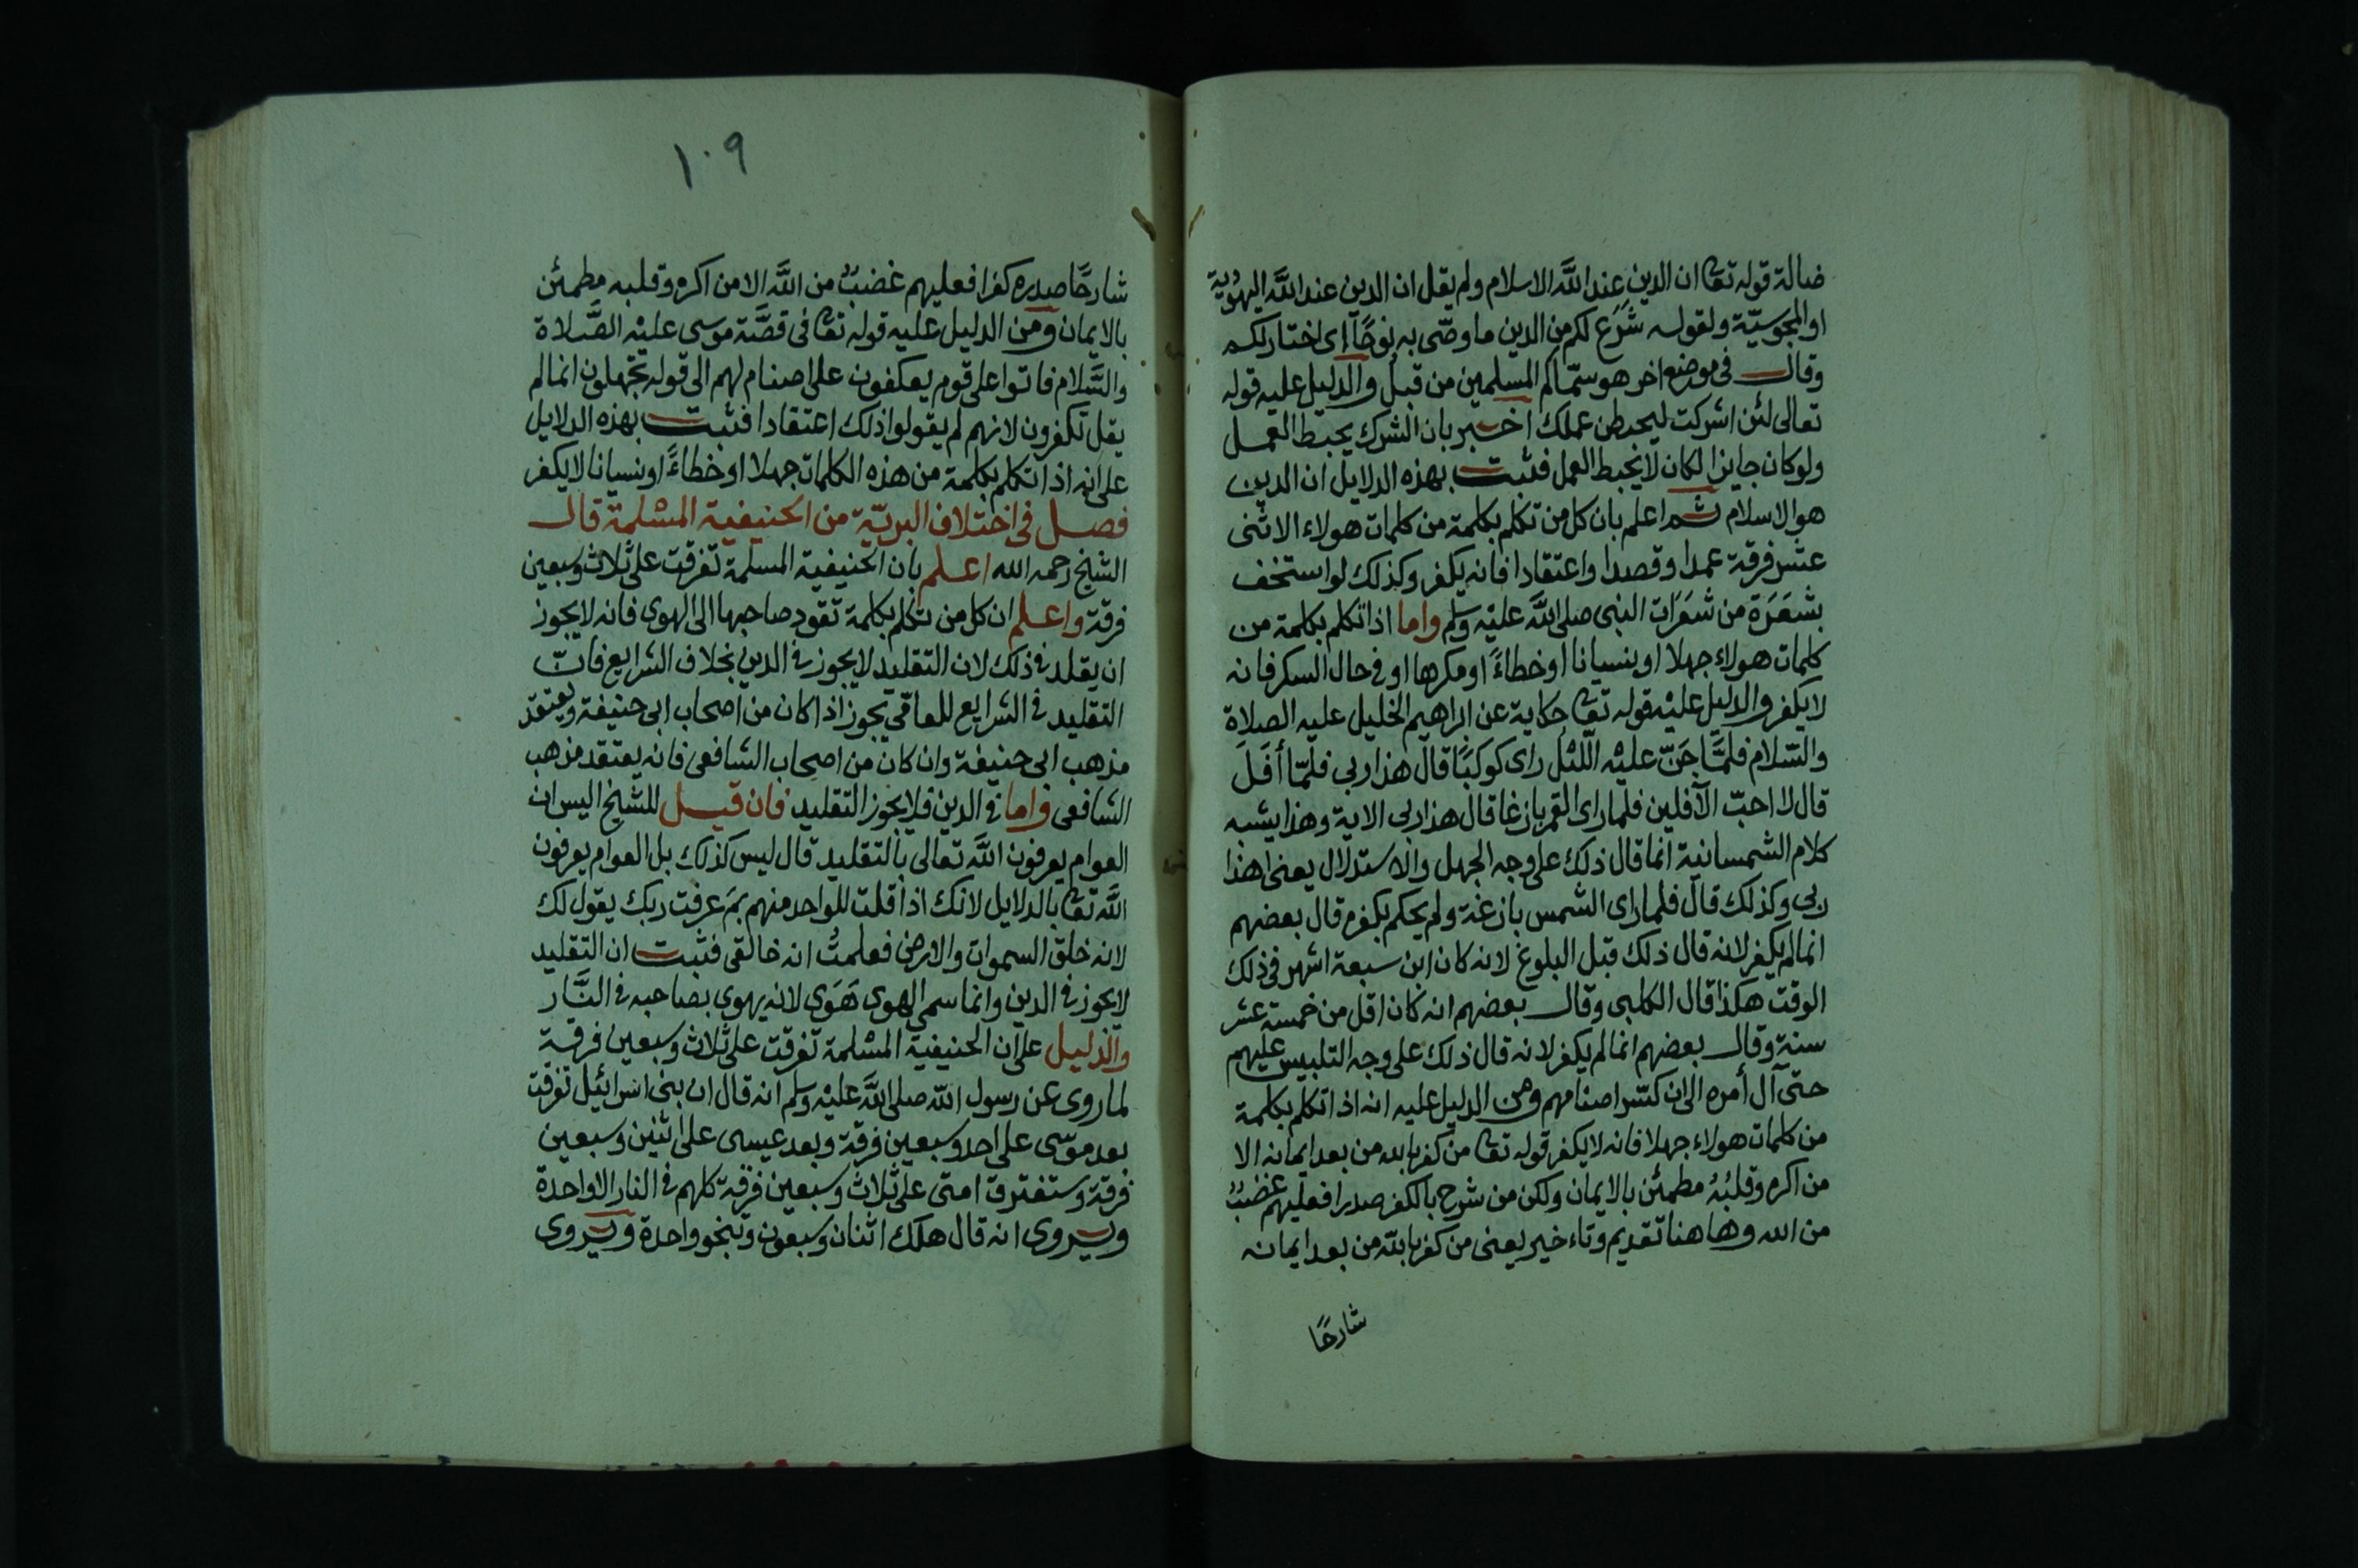 ضالة قوله تعا ان الدين عند الله الاسلام ولم يقل ان الدين عند الله اليهودية
او المجوسيّة ولقوله شَرَع لكم من الدين ما وصّى به نوحًا اى اختار لكم
وقال فى موضع اخر هو سمّاكم المسلمين من قبل والدليل عليه قوله
تعالى لئن اشركت ليحبطن عملك اخبر بان الشرك يحبط العمل
ولو كان جايزا لكان لا يحبط العمل فثبت بهذه الدلايل ان الدين
هو الاسلام ثم اعلم بان كل من تكلم بكلمة من كلمات هولاء الاثنى
عشر فرقة عمدا وقصدا واعتقادا فانه يكفر وكذلك لو استخف
بشعَرَة من شعَرَات النبى صلى الله عليْه وسلم واما اذا تكلم بكلمة من
كلمات هولاء جهلا او نسيانا او خطاءً او مكرها او فى حال السكر فانه
لا يكفر والدليل عليْه قوله تعا حكاية عن ابراهيم الخليل عليه الصلاة
والسّلام فلمَّا جَنّ عليْه اللّيْل راى كوكبًا قال هذا ربى فلمّا أفَلَ
قال لا احبّ الآفلين فلما راى القمر بازغا قال هذا ربى الاية وهذا يشبه
كلام الشمسانية انما قال ذلك على وجه الجهل والاستدلال يعنى اهذا
ربى وكذلك قال فلما راى الشمس بازغة ولم يحكم بكفره قال بعضهم
انما لم يكفر لانه قال ذلك قبل البلوغ لانه كان ابن سبعة اشهر فى ذلك
الوقت هكذا قال الكلبى وقال بعضهم انه كان اقل من خمسة عشر
سنة وقال بعضهم انما لم يكفر لانه قال ذلك على وجه التلبيس عليهم
حتى آل أمره الى ان كسّر اصنامهم ومن الدليل عليه انه اذا تكلم بكلمة
من كلمات هولاء جهلا فانه لا يكفر قوله تعا من كفر بالله من بعد ايمانه الا
من اكره وقلبُهُ مطمئن بالايمان ولكن من شرح بالكفر صدرا فعليهم غضبٌ
من الله وهاهنا تقديم وتاءخير يعنى من كفر بالله من بعد ايمانه
شارحًا
١٠٩
شارحًا صدره كفرا فعليهم غضبٌ من الله الا من اكره وقلبه مطمئن
بالايمان ومن الدليل عليه قوله تعا فى قصَّة موسى عليْه الصَّلاة
والسَّلام فاتوا على قوم يعكفون على اصنام لهم الى قوله تجهلون انما لم
يقل تكفرون لانهم لم يقولوا ذلك اعتقادا فثبت بهذه الدلايل
على انه اذا تكلم بكلمة من هذه الكلمات جهلا او خطاءً او نسيانا لا يكفر
فصل فى اختلاف البريّة من الحنيفية المسْلمة قال
الشيخ رحمه الله اعلم بان الحنيفية المسلمة تفرقت على ثلاث وسبعين
فرقة واعلم ان كل من تكلم بكلمة تقود صاحبها الى الهوى فانه لا يجوز
ان يقلد فى ذلك لان التقليد لا يجوز فى الدين بخلاف الشرايع فانّ
التقليد فى الشرايع للعامّى يجوز اذا كان من اصحاب ابى حنيفة ويعتقد
مذهب ابى حنيفة وان كان من اصحاب الشافعى فانه يعتقد مذهب
الشافعى واما فى الدين فلا يجوز التقليد فان قيل للشيخ اليس ان
العوام يعرفون الله تعالى بالتقليد قال ليس كذلك بل العوام يعرفون
الله تعا بالدلايل لانك اذا قلت للواحد منهم بمَ عرفت ربك يقول لك
لانه خلق السموات والارض فعلمتُ انه خالقى فثبت ان التقليد
لا يجوز فى الدين وانما سمى الهوى هَوَى لانه يهوى بصاحبه فى النَّار
والدليل على ان الحنيفية المسْلمة تفرقت على ثلاث وسبعين فرقة
لما روى عن رسول الله صلى الله عليْه وسلم انه قال ان بنى اسرائيل تفرقت
بعد موسى على احد وسبعين فرقة وبعد عيسى على اثنين وسبعين
فرقة وستفترق امتى على ثلاث وسبعين فرقة كلهم فى النار الا واحدة
ويروى انه قال هلك اثنان وسبعون وينجو واحدة ويروى